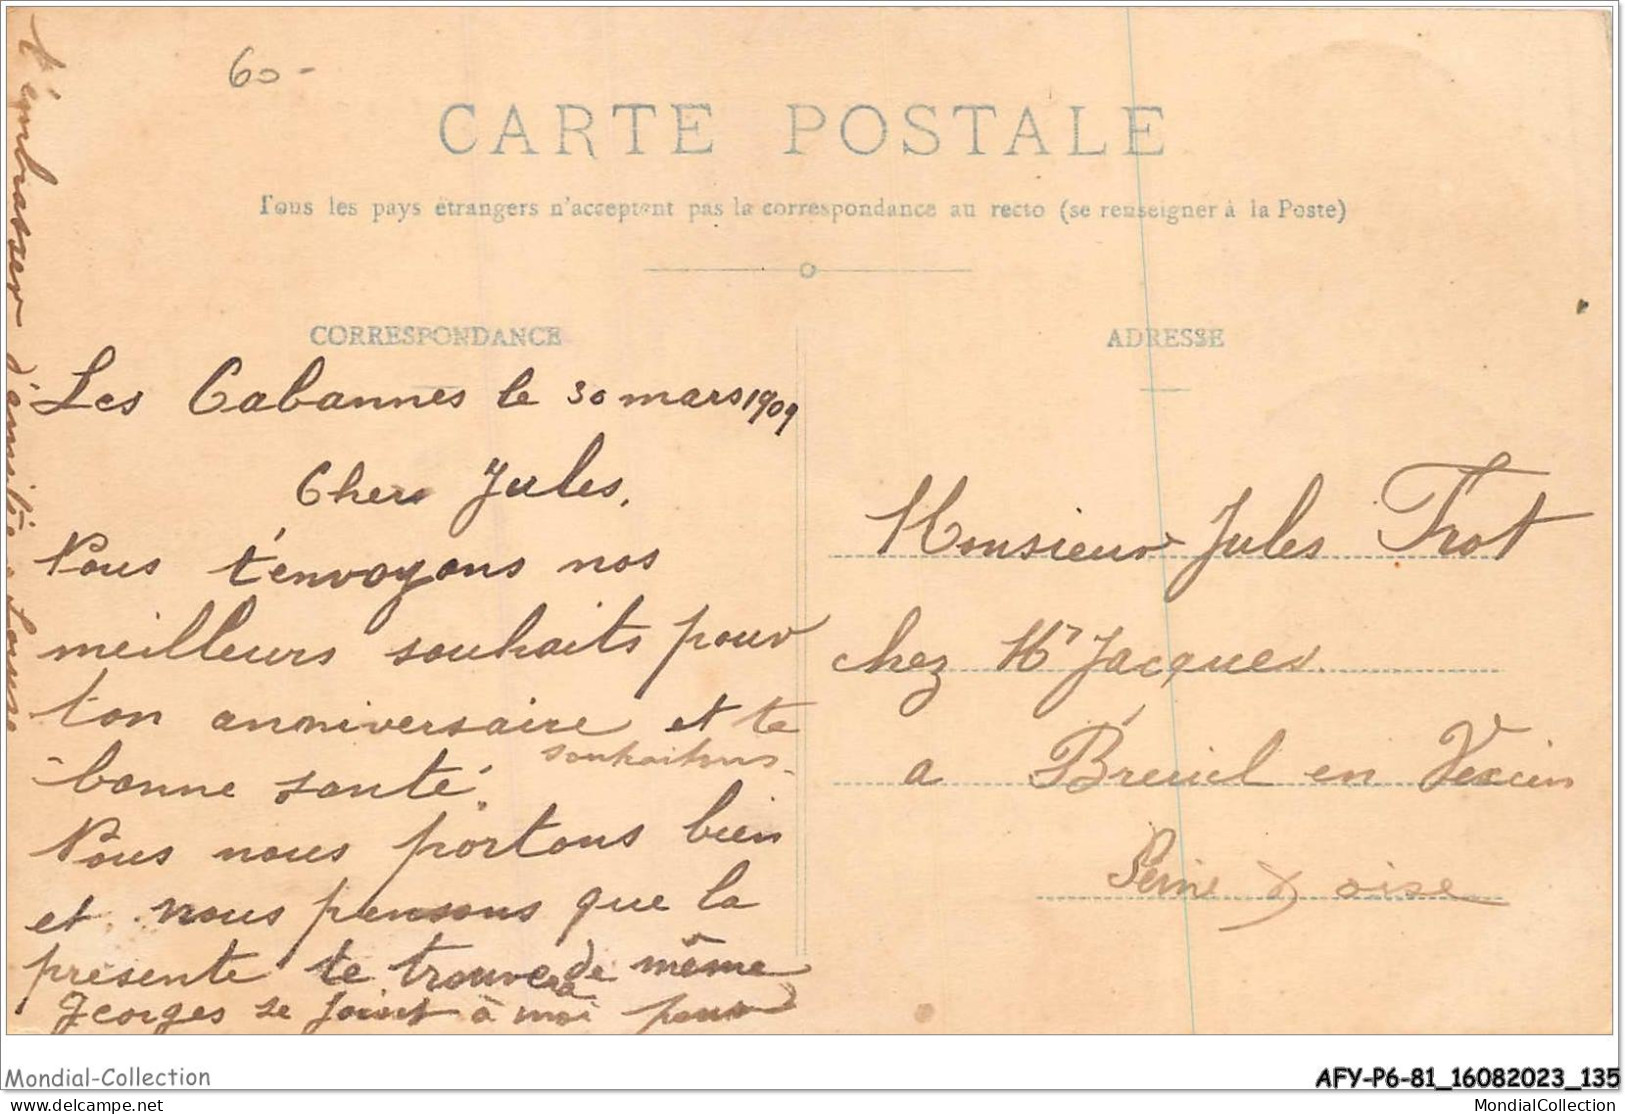 60-
CARTE POSTALE
Tous les pays étrangers n'acceptent pas la correspondance au recto (se renseigner à la Poste)
CORRESPONDANCE
Les Cabannes le 30 mars 1909
Cher Jules,
Nous t'envoyons nos
meilleurs souhaits pour
ton anniversaire et te
souhaitons
bonne santé.
Nous nous portons bien
et nous pensons que la
présente te trouvera de même
Georges se joint à moi pour
t'embrasser d'amitié Louise
ADRESSE
Monsieur Jules Trot
chez Mr Jacques
a Breuil en Vexin
Seine & oise
Mondial-Collection
AFY-P6-81_16082023_135
delcampe.net
MondialCollection